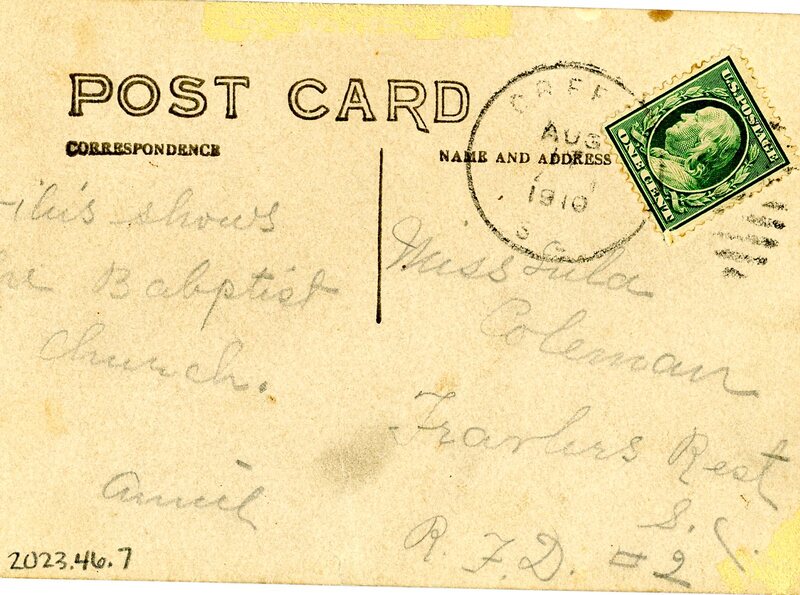 POST CARD
CORRESPONDENCE
NAME AND ADDRESS
AUG
1910
S
U.S. POSTAGE
ONE CENT
this shows
the Babptist
Church.
Annie
Miss Lula
Coleman
Travlers Rest
S. C.
R. F. D. #2
2023.46.7